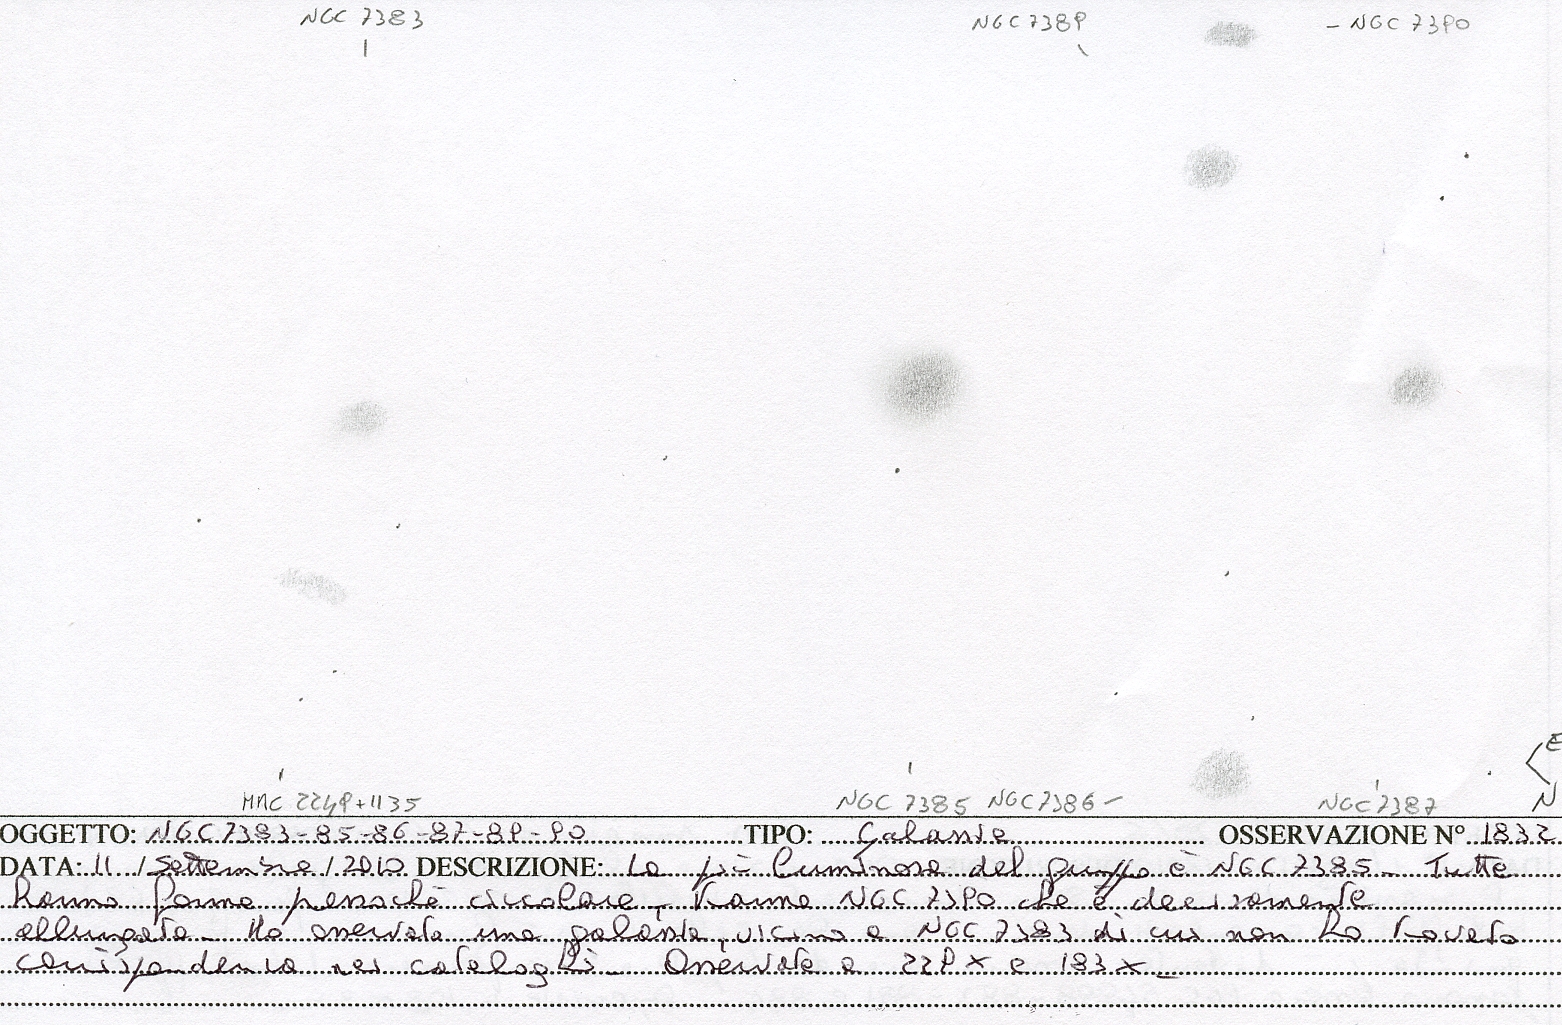 NGC 7383 NGC 7389 - NGC 7390
MAC 2249+1135 NGC 7385 NGC 7386 - NGC 7387
E
N
OGGETTO: NGC 7383-85-86-87-89-90 TIPO: Galassie OSSERVAZIONE N° 1832
DATA: 11 / Settembre / 2010 DESCRIZIONE: La più luminosa del gruppo è NGC 7385. Tutte
hanno forma pressoché circolare, tranne NGC 7390 che è decisamente
allungata. Ho osservato una galassia, vicino a NGC 7383 di cui non ho trovato
corrispondenza nei cataloghi. Osservate a 229x e 183x.